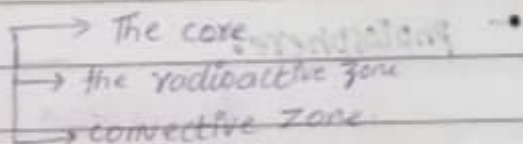 The core
the radioactive zone
convective zone